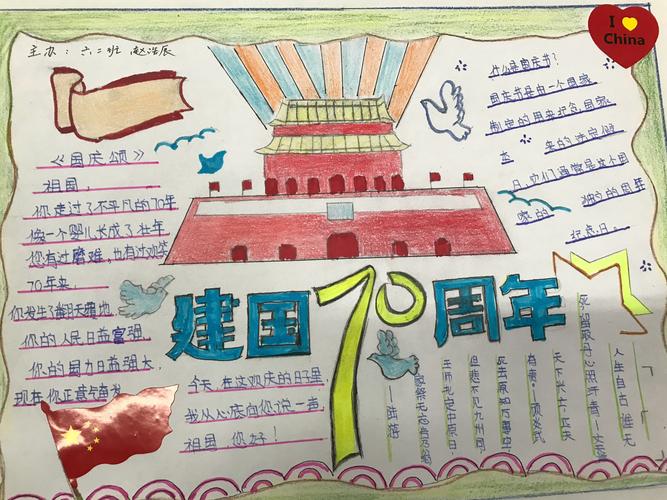 I ♥ China
主办：六二班 赵浩辰
《国庆颂》
祖国，
你走过了不平凡的70年
像一个婴儿长成了壮年
您有过磨难,也有过欢笑
70年来，
你发生了翻天覆地
你的人民日益富强
你的国力日益强大
现在你正意气奋发
什么是国庆节？
国庆节是由一个国家
制定的用来纪念国家
来的法定假
日,它们通常是这个国
家的 独立的周年
纪念日。
建国70周年
今天,在这欢庆的日子里,
我从心底向您说一声,
祖国 您好！
人生自古谁无
死,留取丹心照汗青
天下兴亡,匹夫
有责。——顾炎武
死去原知万事空
但悲不见九州同
王师北定中原日,
家祭无忘告乃翁
——陆游